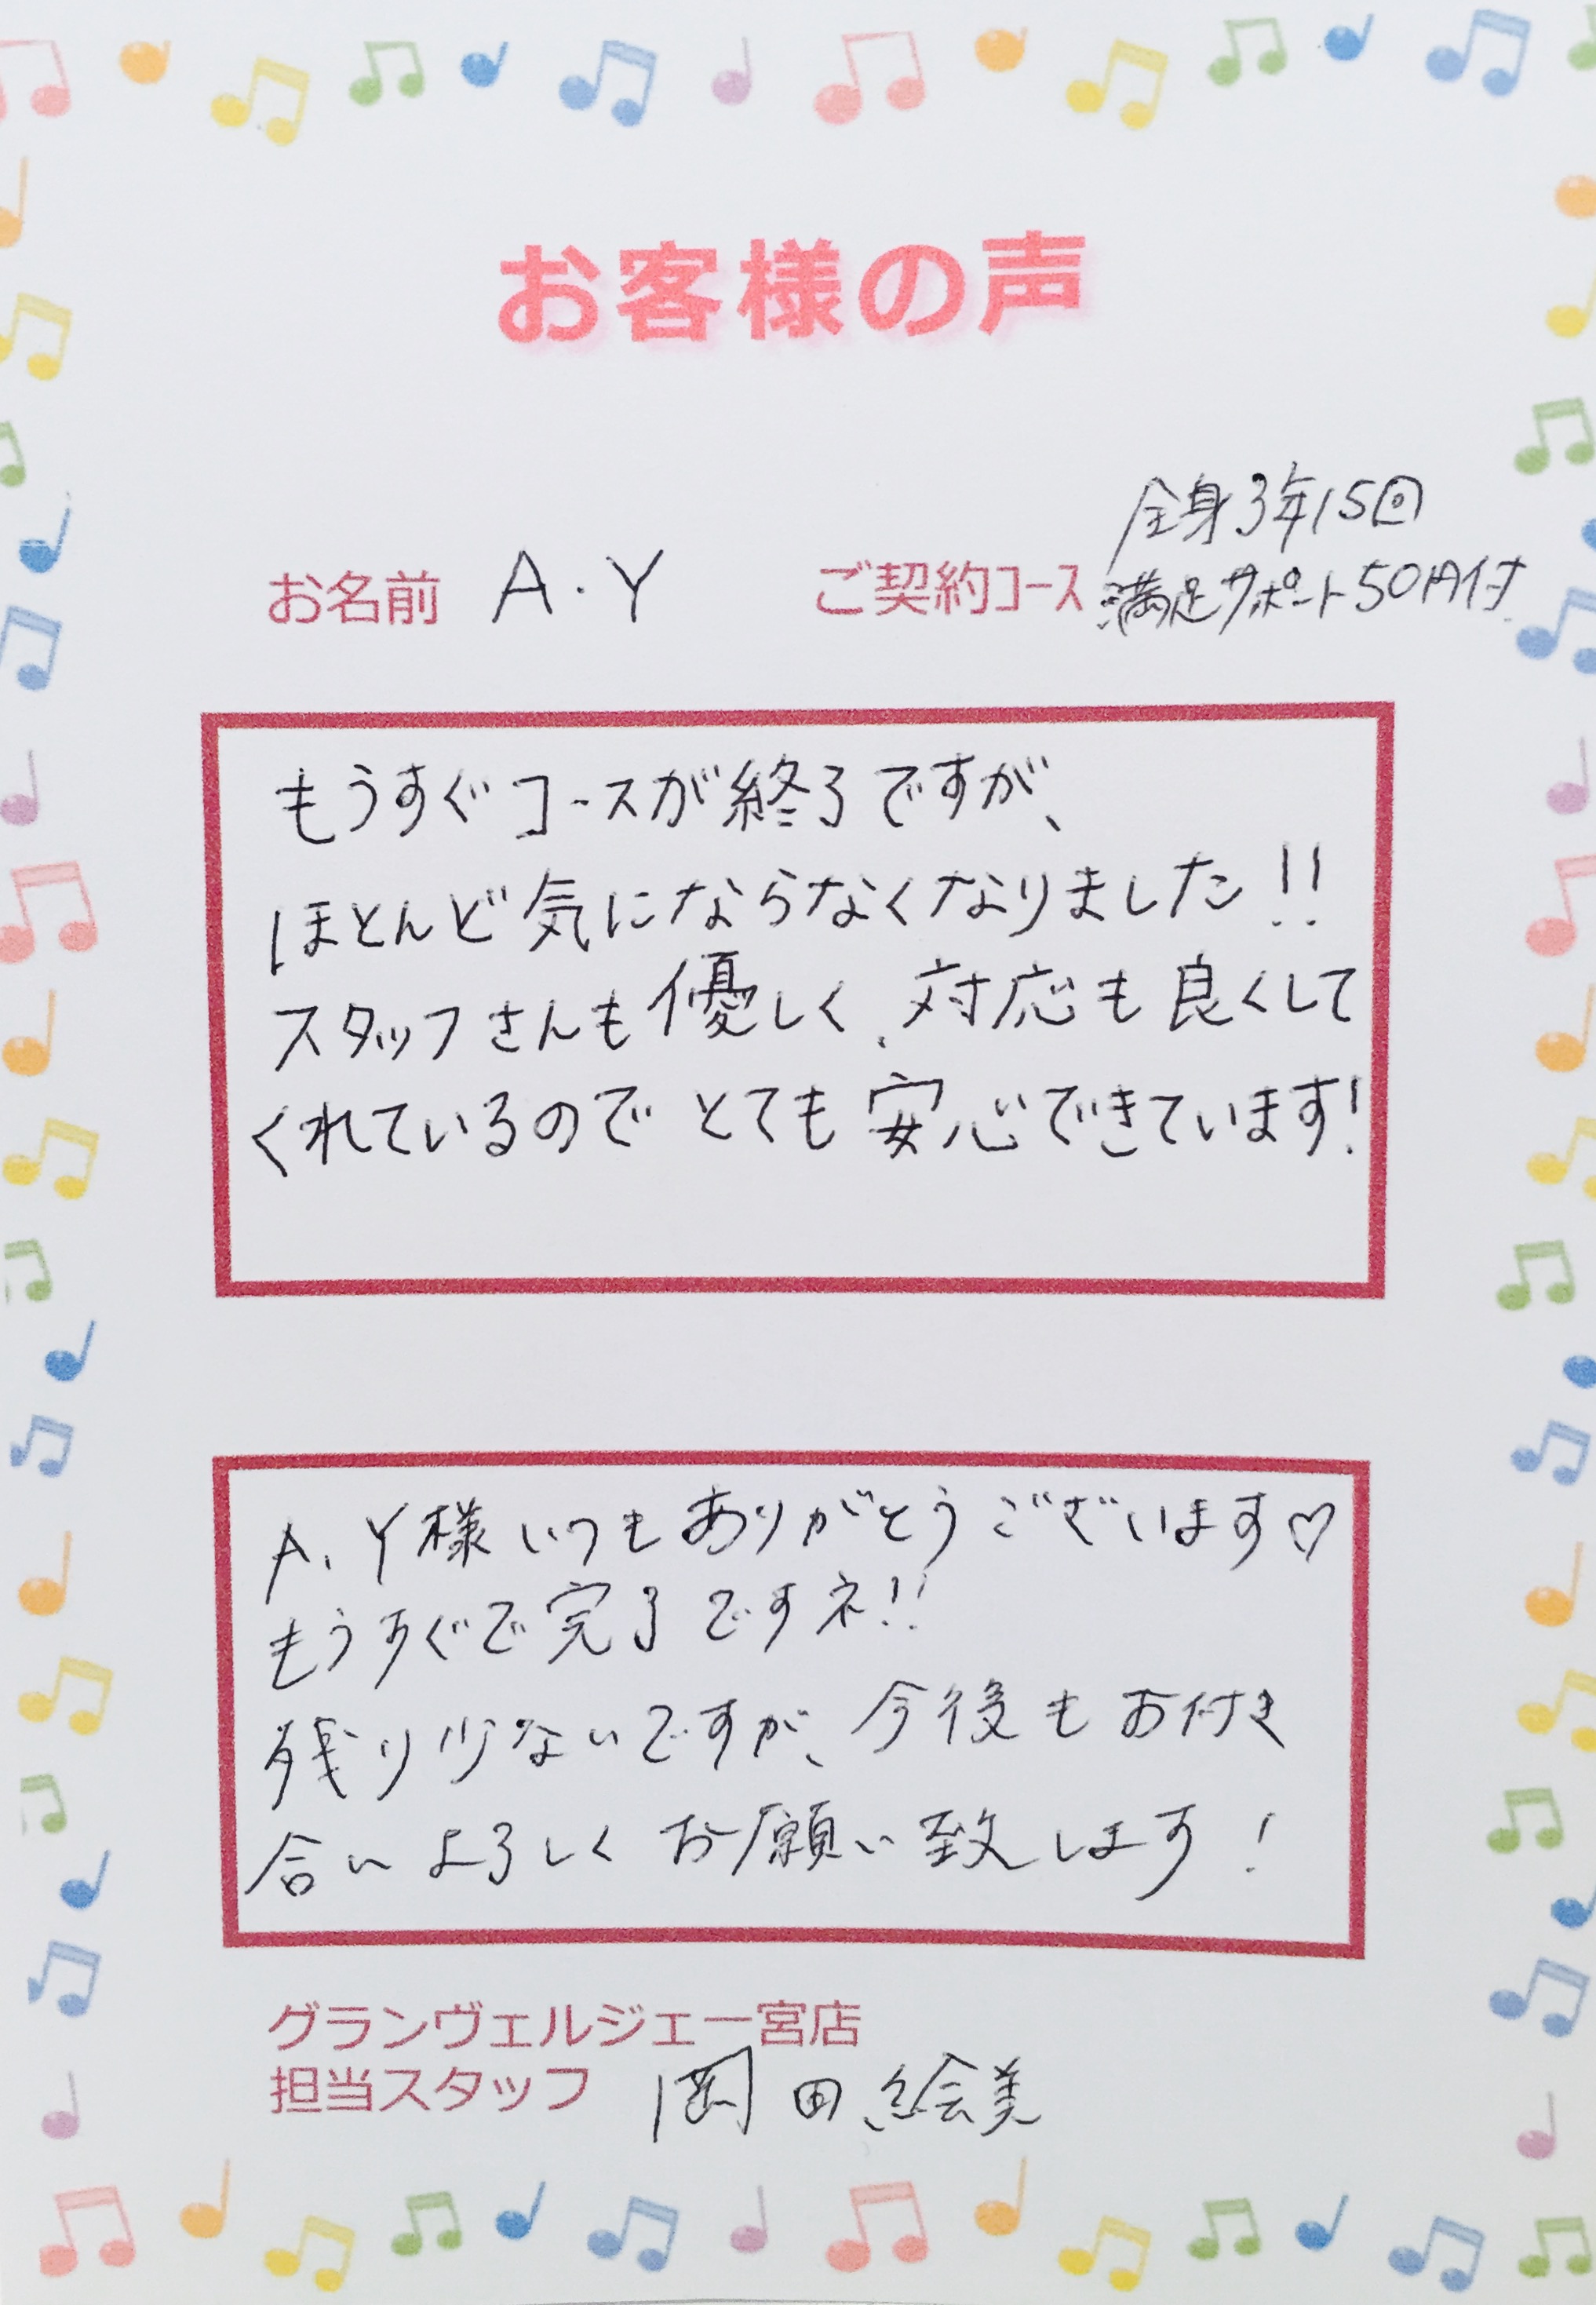 お客様の声
全身3年15回
お名前 A.Y ご契約コース 満足サポート50円付
もうすぐコースが終了ですが、
ほとんど気にならなくなりました!!
スタッフさんも優しく、対応も良くして
くれているのでとても安心できています!
A.Y様いつもありがとうございます♡
もうすぐで完了ですネ!!
残り少ないですが、今後もお付き
合いよろしくお願い致します!
グランヴェルジェ一宮店
担当スタッフ 岡田絵美